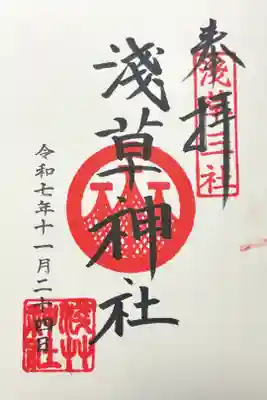 奉拝
淺草神社
令和七年十一月二十四日
淺草神社